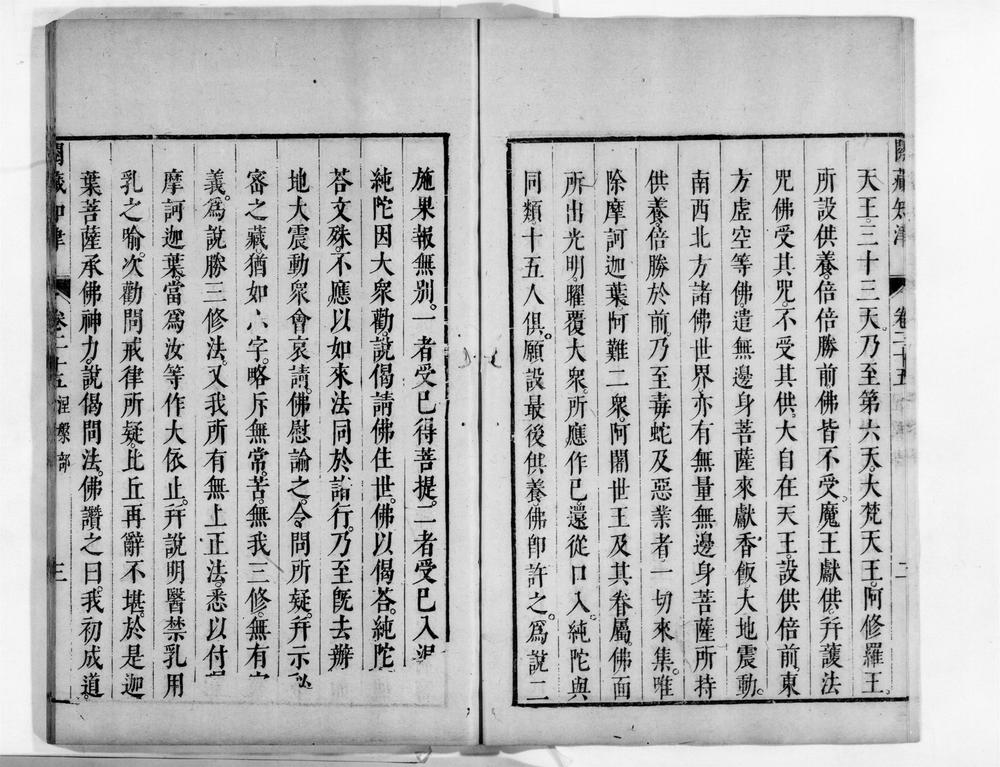 閱藏知津 卷二十五 二
天王。三十三天。乃至第六天。大梵天王。阿修羅王。
所設供養。倍倍勝前。佛皆不受。魔王獻供。幷護法
咒。佛受其咒。不受其供。大自在天王。設供倍前。東
方虛空等佛。遣無邊身菩薩來獻香飯。大地震動。
南西北方諸佛世界。亦有無量無邊身菩薩所持
供養。倍勝於前。乃至毒蛇及惡業者。一切來集。唯
除摩訶迦葉。阿難二衆。阿闍世王及其眷屬。佛面
所出光明。曜覆大衆。所應作已。還從口入。純陀與
同類十五人俱。願設最後供養。佛卽許之。爲說二
施果報無別。一者受已得菩提。二者受已入涅
純陀因大衆勸。說偈請佛住世。佛以偈荅。純陀
荅文殊。不應以如來法同於諸行。乃至旣去辦
地大震動。衆會哀請。佛慰諭之。令問所疑。幷示祕
密之藏。猶如∴字。略斥無常。苦。無我三修。無有
義。爲說勝三修法。又我所有無上正法。悉以付
摩訶迦葉。當爲汝等作大依止。幷說明醫禁乳用
乳之喻。次勸問戒律所疑。比丘再辭不堪。於是迦
葉菩薩承佛神力。說偈問法。佛讚之曰。我初成道。
閱藏知津 卷二十五 涅槃部 三